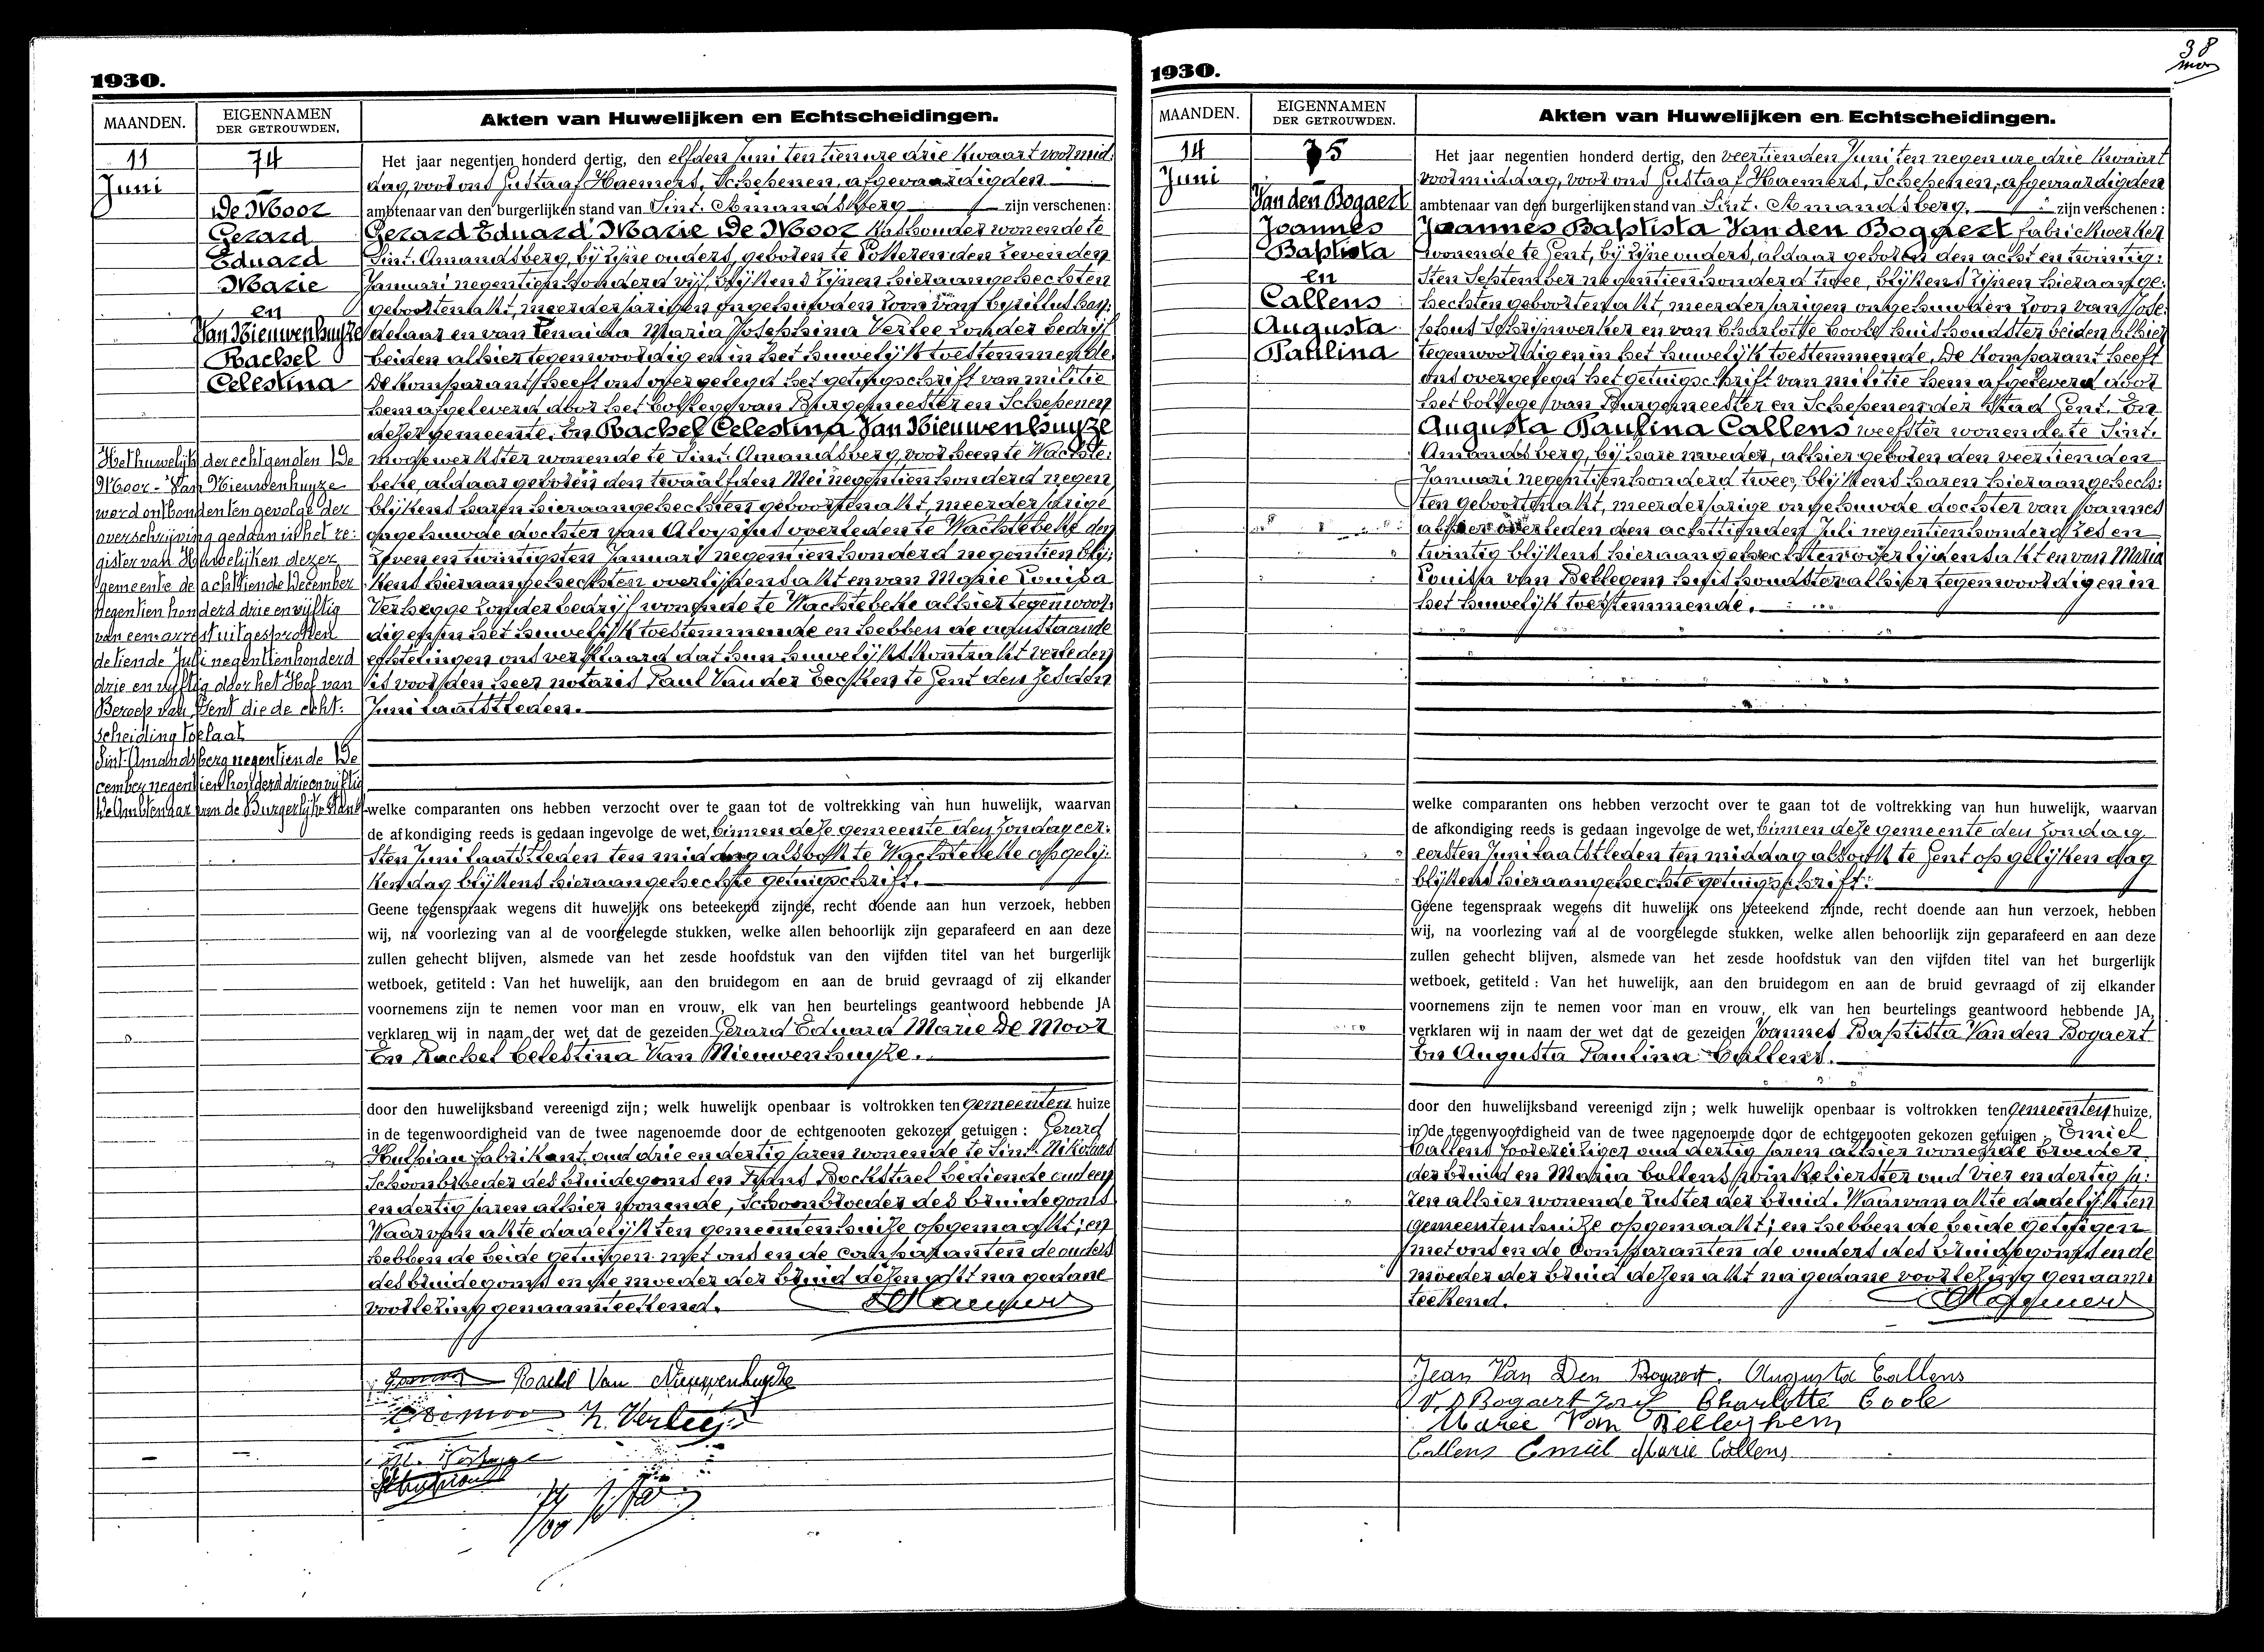 1930.
MAANDEN.
EIGENNAMEN
DER GETROUWDEN.
Akten van Huwelijken en Echtscheidingen.
11
Juni
74
De Moor
Gerard
Eduard
Marie
en
Van Nieuwenhuyze
Rachel
Celestina
Het huwelijk der echtgenoten De
Moor - Van Nieuwenhuyze
werd ontbonden ten gevolge der
overschrijving gedaan in het re:
gister van Huwelijken dezer
gemeente de achttiende December
negentien honderd drie en vijftig
van een arrest uitgesproken
de tiende Juli negentienhonderd
drie en vijftig door het Hof van
Beroep van Gent die de echt:
scheiding toelaat
Sint-Amandsberg negentiende De
cember negentienhonderd drie en vijftig
De Ambtenaar van de Burgerlijke Stand
Het jaar negentien honderd dertig, den elfden Juni ten tien ure drie kwaart voormid:
dag, voor ons Gustaaf Haemers, Schepenen, afgevaardigden
ambtenaar van den burgerlijken stand van Sint. Amandsberg zijn verschenen:
Gerard Eduard Marie De Moor wonende te
Sint. Amandsberg, bij zijne ouders, geboren te Lokeren den zevenden
Januari negentienhonderd vijf, blijkens zijnen hieraangehechten
geboortenakt, meerderjarigen ongehuwden zoon van
en van Zenaida Maria Josephina Verlee zonder bedrijf
beiden alhier tegenwoordig en in het huwelijk toestemmende.
De komparant heeft ons overgelegd het getuigschrift van militie
hem afgeleverd door het College van Burgemeester en Schepenen
dezer gemeente. En Rachel Celestina Van Nieuwenhuyze
wonende te Sint. Amandsberg, voorheen te Wachte:
beke, aldaar geboren den twaalfden Mei negentienhonderd negen
blijkens haren hieraangehechten geboortenakt, meerderjarige
ongehuwde dochter van Aloysius overleden te Wachtebeke den
zeven en twintigsten Januari negentienhonderd negentien blij:
kens hieraangehechten overlijdensakt en van Marie Louisa
Verhegge zonder bedrijf wonende te Wachtebeke alhier tegenwoor:
dig en in het huwelijk toestemmende en hebben de aanstaande
echtelingen ons verklaard dat hun huwelijkskontrakt verleden
is voor den heer notaris Paul Van der Eecken te Gent den zesden
Juni laatstleden.
welke comparanten ons hebben verzocht over te gaan tot de voltrekking van hun huwelijk, waarvan
de afkondiging reeds is gedaan ingevolge de wet, binnen deze gemeente den zondag eer:
sten Juni laatstleden ten middag alsook te Wachtebeke op gelij:
ken dag blijkens hieraangehechte getuigschrift.
Geene tegenspraak wegens dit huwelijk ons beteekend zijnde, recht doende aan hun verzoek, hebben
wij, na voorlezing van al de voorgelegde stukken, welke allen behoorlijk zijn geparafeerd en aan deze
zullen gehecht blijven, alsmede van het zesde hoofdstuk van den vijfden titel van het burgerlijk
wetboek, getiteld : Van het huwelijk, aan den bruidegom en aan de bruid gevraagd of zij elkander
voornemens zijn te nemen voor man en vrouw, elk van hen beurtelings geantwoord hebbende JA
verklaren wij in naam der wet dat de gezeiden Gerard Eduard Marie De Moor
En Rachel Celestina Van Nieuwenhuyze.
door den huwelijksband vereenigd zijn; welk huwelijk openbaar is voltrokken ten gemeenten huize
in de tegenwoordigheid van de twee nagenoemde door de echtgenooten gekozen getuigen : Gerard
fabrikant, oud drie en dertig jaren wonende te Sint. Nikolaas
Schoonbroeder des bruidegoms en Frans Bockstael bediende oud een
en dertig jaren alhier wonende, Schoonbroeder des bruidegoms
Waarvan akte dadelijk ten gemeentenhuize opgemaakt; en
hebben de beide getuigen met ons en de comparanten de ouders
des bruidegoms en de moeder der bruid dezen akt na gedane
voorlezing genaamteekend.
Rachel Van Nieuwenhuyze
Z. Verlee
38
1930.
MAANDEN.
EIGENNAMEN
DER GETROUWDEN.
Akten van Huwelijken en Echtscheidingen.
14
Juni
75
Van den Bogaert
Joannes
Baptista
en
Callens
Augusta
Paulina
Het jaar negentien honderd dertig, den veertienden Juni ten negen ure drie kwaart
voormiddag, voor ons Gustaaf Haemers, Schepenen, afgevaardigden
ambtenaar van den burgerlijken stand van Sint. Amandsberg. zijn verschenen :
Joannes Baptista Van den Bogaert fabriekwerker
wonende te Gent, bij zijne ouders, aldaar geboren den acht en twintig:
sten September negentienhonderd twee, blijkens zijnen hieraange:
hechten geboortenakt, meerderjarigen ongehuwden zoon van Jose:
phus Schrijnwerker en van Charlotte Coole huishoudster beiden alhier
tegenwoordig en in het huwelijk toestemmende. De komparant heeft
ons overgelegd het getuigschrift van militie hem afgeleverd door
het College van Burgemeester en Schepenen der Stad Gent. En
Augusta Paulina Callens weefster wonende te Sint.
Amandsberg, bij hare moeder, alhier geboren den veertienden
Januari negentienhonderd twee, blijkens haren hieraangehech:
ten geboortenakt, meerderjarige ongehuwde dochter van Joannes
alhier overleden den achttienden Juli negentienhonderd zes en
twintig blijkens hieraangehechten overlijdensakt en van Maria
Louisa van Bellegem huishoudster alhier tegenwoordig en in
het huwelijk toestemmende.
welke comparanten ons hebben verzocht over te gaan tot de voltrekking van hun huwelijk, waarvan
de afkondiging reeds is gedaan ingevolge de wet, binnen deze gemeente den zondag
eersten Juni laatstleden ten middag alsook te Gent op gelijken dag
blijkens hieraangehechte getuigschrift.
Geene tegenspraak wegens dit huwelijk ons beteekend zijnde, recht doende aan hun verzoek, hebben
wij, na voorlezing van al de voorgelegde stukken, welke allen behoorlijk zijn geparafeerd en aan deze
zullen gehecht blijven, alsmede van het zesde hoofdstuk van den vijfden titel van het burgerlijk
wetboek, getiteld : Van het huwelijk, aan den bruidegom en aan de bruid gevraagd of zij elkander
voornemens zijn te nemen voor man en vrouw, elk van hen beurtelings geantwoord hebbende JA,
verklaren wij in naam der wet dat de gezeiden Joannes Baptista Van den Bogaert
En Augusta Paulina Callens.
door den huwelijksband vereenigd zijn ; welk huwelijk openbaar is voltrokken ten gemeenten huize,
in de tegenwoordigheid van de twee nagenoemde door de echtgenooten gekozen getuigen : Emiel
Callens oud dertig jaren alhier wonende broeder
der bruid en Maria Callens winkelierster oud vier en dertig ja:
ren alhier wonende zuster der bruid. Waarvan akte dadelijk ten
gemeentenhuize opgemaakt; en hebben de beide getuigen
met ons en de Comparanten de ouders des bruidegoms en de
moeder der bruid dezen akt na gedane voorlezing genaam:
teekend.
Jean Van Den Bogaert. Augusta Callens
V. d Bogaert Jozef Charlotte Coole
Marie Van Belleghem
Callens Emiel Marie Callens